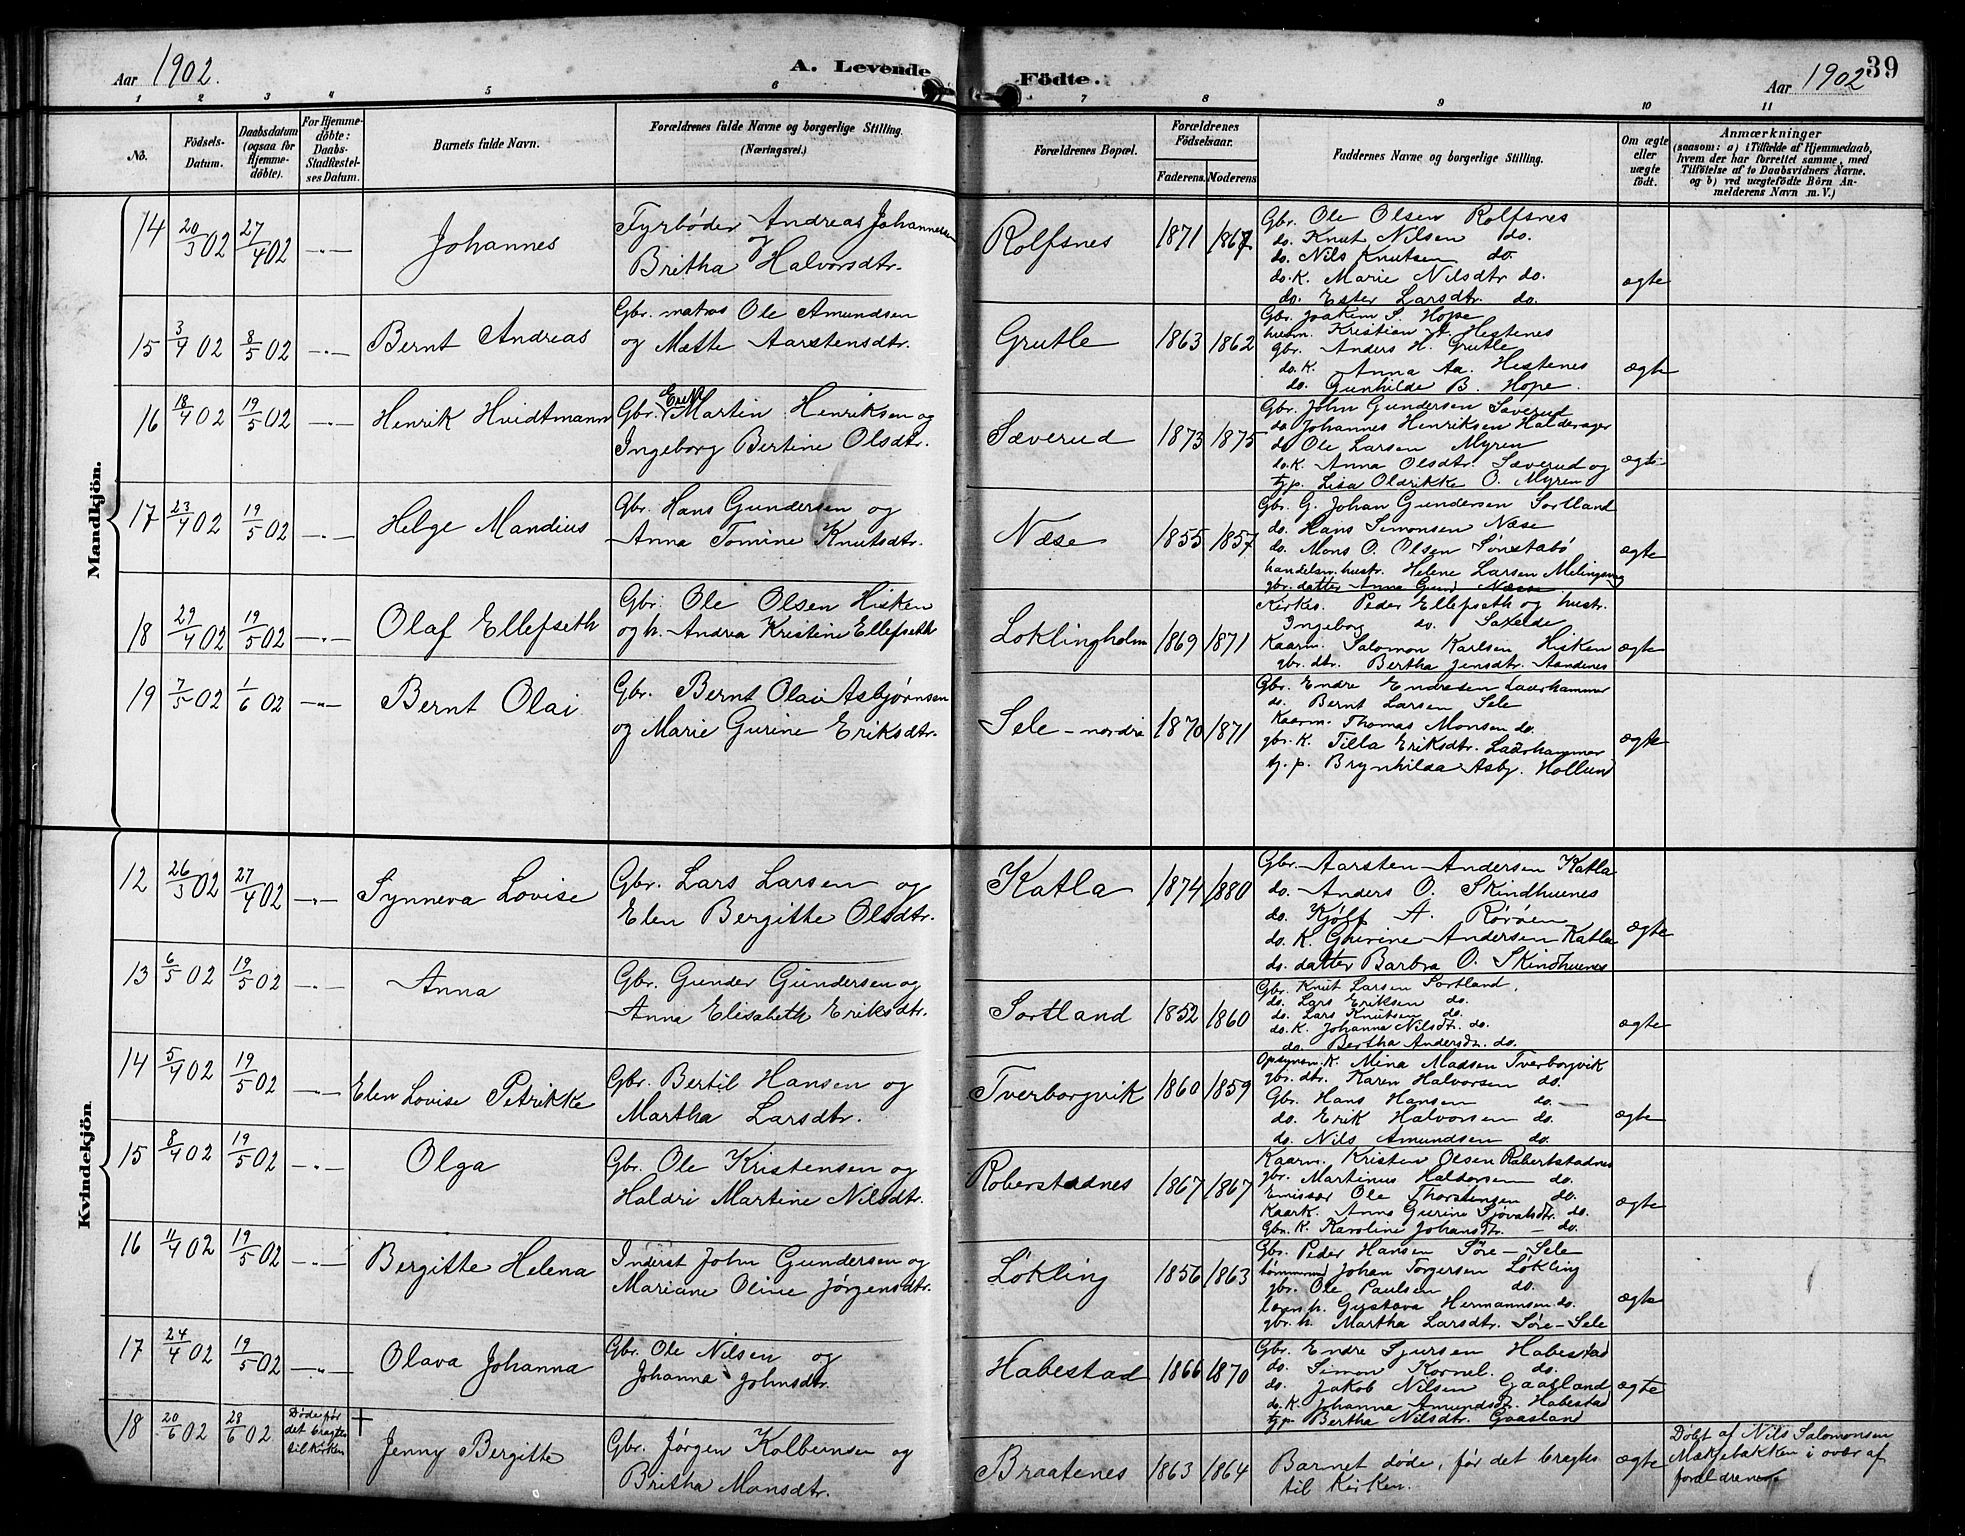 Aar 1902. A. Levende Födte. Aar 1902 39
1 2 3 4 5 6 7 8 9 10 11
No. Födsels-Datum. Daabsdatum (ogsaa for Hjemme-döbte). For Hjemme-döbte: Daabs-Stadfæstel-ses Datum. Barnets fulde Navn. Forældrenes fulde Navne og borgerlige Stilling. (Næringsvei.) Forældrenes Bopæl. Forældrenes Födselsaar. Faderens. Moderens Faddernes Navne og borgerlige Stilling. Om ægte eller uægte födt. Anmærkninger
(saasom: a) i Tilfælde af Hjemmedaab,
hvem der har forrettet samme, med
Tilföielse af to Daabsvidners Navne.
og b) ved uægtefödte Börn An-
melderens Navn m. V.)
Mandkjön.
14 20/3 02 27/4 02 -"- Johannes Fyrbøder Andreas Johannesen og
Britha Halvorsdtr. Rolfsnes 1871 1867 Gbr. Ole Olsen Rolfsnes
do. Knut Nilsen do.
do. Nils Knutsen do.
do. K. Marie Nilsdtr do.
do. Ester Larsdtr. do. ægte
15 3/4 02 8/5 02 -"- Bernt Andreas Gbr. matros Ole Amundsen
og Mætte Aarstensdtr. Grutle 1863 1862 Gbr. Joakim S. Hope
husm. Kristian J. Hestenes
gbr. Anders H. Grutle
do. K. Anna Aa. Hestenes
do. Gunhilde B. Hope. ægte
16 18/4 02 19/5 02 -"- Henrik Hvidtmann Gbr. Martin Henriksen og
Ingeborg Bertine Olsdtr. Sæverud 1873 1875 Gbr. John Gundersen Sæverud
do Johannes Henriksen Halderager
do Ole Larsen Myren
do. K. Anna Olsdtr. Sæverud og
tj. p. Lisa Oldrikke O. Myren ægte
17 23/4 02 19/5 02 -"- Helge Mandius Gbr. Hans Gundersen og
Anna Tomine Knutsdtr. Næse 1855 1857 Gbr. G. Johan Gundersen Sortland
do. Hans Simonsen Næse
do. Mons O. Olsen Sønstabø
handelsm. hustr. Helene Larsen Melingsvag
gbr. datter Anna Gund Næse ægte
18 29/4 02 19/5 02 -"- Olaf Ellefseth Gbr. Ole Olsen Hisken
og h. Andrea Kristine Ellefseth Loklingholm 1869 1871 Kirkes. Peder Ellefseth og hustr.
Ingeborg do. Sakseide
Kaarm. Salomon Karlsen Hisken
gbr. dtr. Bertha Jensdtr. Aandenes ægte
19 7/5 02 1/6 02 -"- Bernt Olai Gbr. Bernt Olai Asbjørnsen
og Marie Gurine Eriksdtr. Sele - nordre 1870 1871 Gbr. Endre Endresen Laurhammer
do. Bernt Larsen Sele
Kaarm. Thomas Monsen do.
gbr. K. Tilla Eriksdtr. Laurhammer
tj. p. Brynhilda Asbj. Hollund ægte
Kvindekjön
12 26/3 02 27/4 02 -"- Synneva Lovise Gbr. Lars Larsen og
Elen Bergitte Olsdtr. Katla 1874 1880 Gbr. Aarsten Andersen Katla
do. Anders O. Skindhuenes
do. Kjølf A. Rørøen
do. K. Gurine Andersen Katla
do. datter Barbra O. Skindhuenes ægte
13 6/5 02 19/5 02 -"- Anna Gbr. Gunder Gundersen og
Anna Elisabeth Eriksdtr. Sortland 1852 1860 Gbr. Knut Larsen Sortland,
do. Lars Eriksen do.
do. Lars Knutsen do.
do. K. Johanna Nilsdtr. do.
do. Bertha Andersdtr. do. ægte
14 5/4 02 19/5 02 -"- Elen Lovise Petrikke Gbr. Bertil Hansen og
Martha Larsdtr. Tverborgvik 1860 1859 Opsynsm. K. Mina Madsen Tverborgvik
gbr. dtr. Karen Halvorsen do.
Gbr. Hans Hansen do.
do. Erik Halvorsen do.
do. Nils Amundsen do. ægte
15 8/4 02 19/5 02 -"- Olga Gbr. Ole Kristensen og
Haldri Martine Nilsdtr. Roberstadnes 1867 1867 Kaarm. Kristen Olsen Robertstadnes
gbr. Martinus Haldorsen do.
Emissær Ole Thorstensen do.
Kaark. Anna Gurine Sjovatsdtr. do.
Gbr. K. Karoline Johansdtr. do. ægte
16 11/4 02 19/5 02 -"- Bergitte Helena Inderst John Gundersen og
Mariane Oline Jørgensdtr. Løkling 1856 1863 Gbr. Peder Hansen Søre-Sele
tømmermd Johan Torgersen Løkling
gbr. Ole Paulsen do.
h. Gustava Hermannsen do.
gbr. h. Martha Larsdtr. Søre-Sele ægte
17 24/4 02 19/5 02 -"- Olava Johanna Gbr. Ole Nilsen og
Johanna Johnsdtr. Habestad 1866 1870 Gbr. Endre Sjursen Habestad
do. Simon Kornel. do.
do. Jakob Nilsen Gaasland
do. K. Johanna Amundsdtr. Habestad
tj. p. Bertha Nilsdtr. Gaasland ægte
18 20/6 02 28/6 02 Døde før
det bragtes
til Kirken Jenny Bergitte Gbr. Jørgen Kolbeinsen og
Britha Monsdtr. Braatenes 1863 1864 Barnet døde, før det bragtes
til Kirken. ægte Døbt af Nils Salomonsen
Mækjebakken i overvær af
forældrene